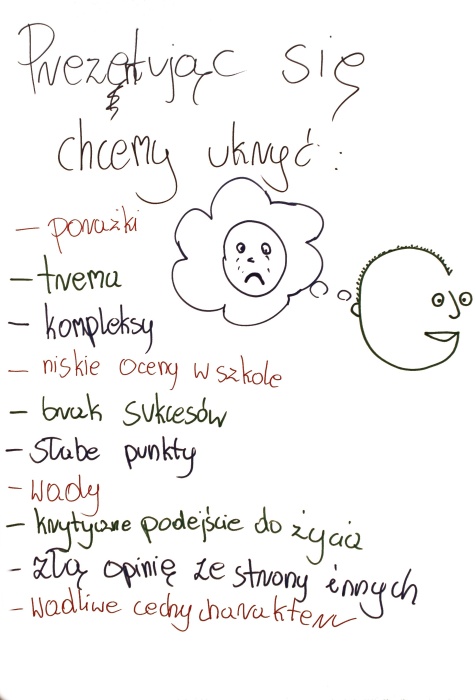 Prezętując się
chcemy ukryć:
- porażki
- trema
- kompleksy
- niskie oceny w szkole
- brak sukcesów
- słabe punkty
- wady
- krytyczne podejście do życia
- złą opinię ze strony innych
- wadliwe cechy charakteru